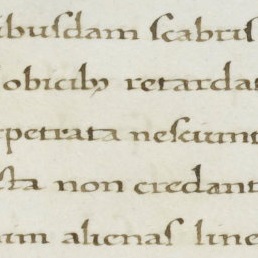 ibusdam scabris
obicib; retardat
petrata nesciunt
cta non credant
um alienas line